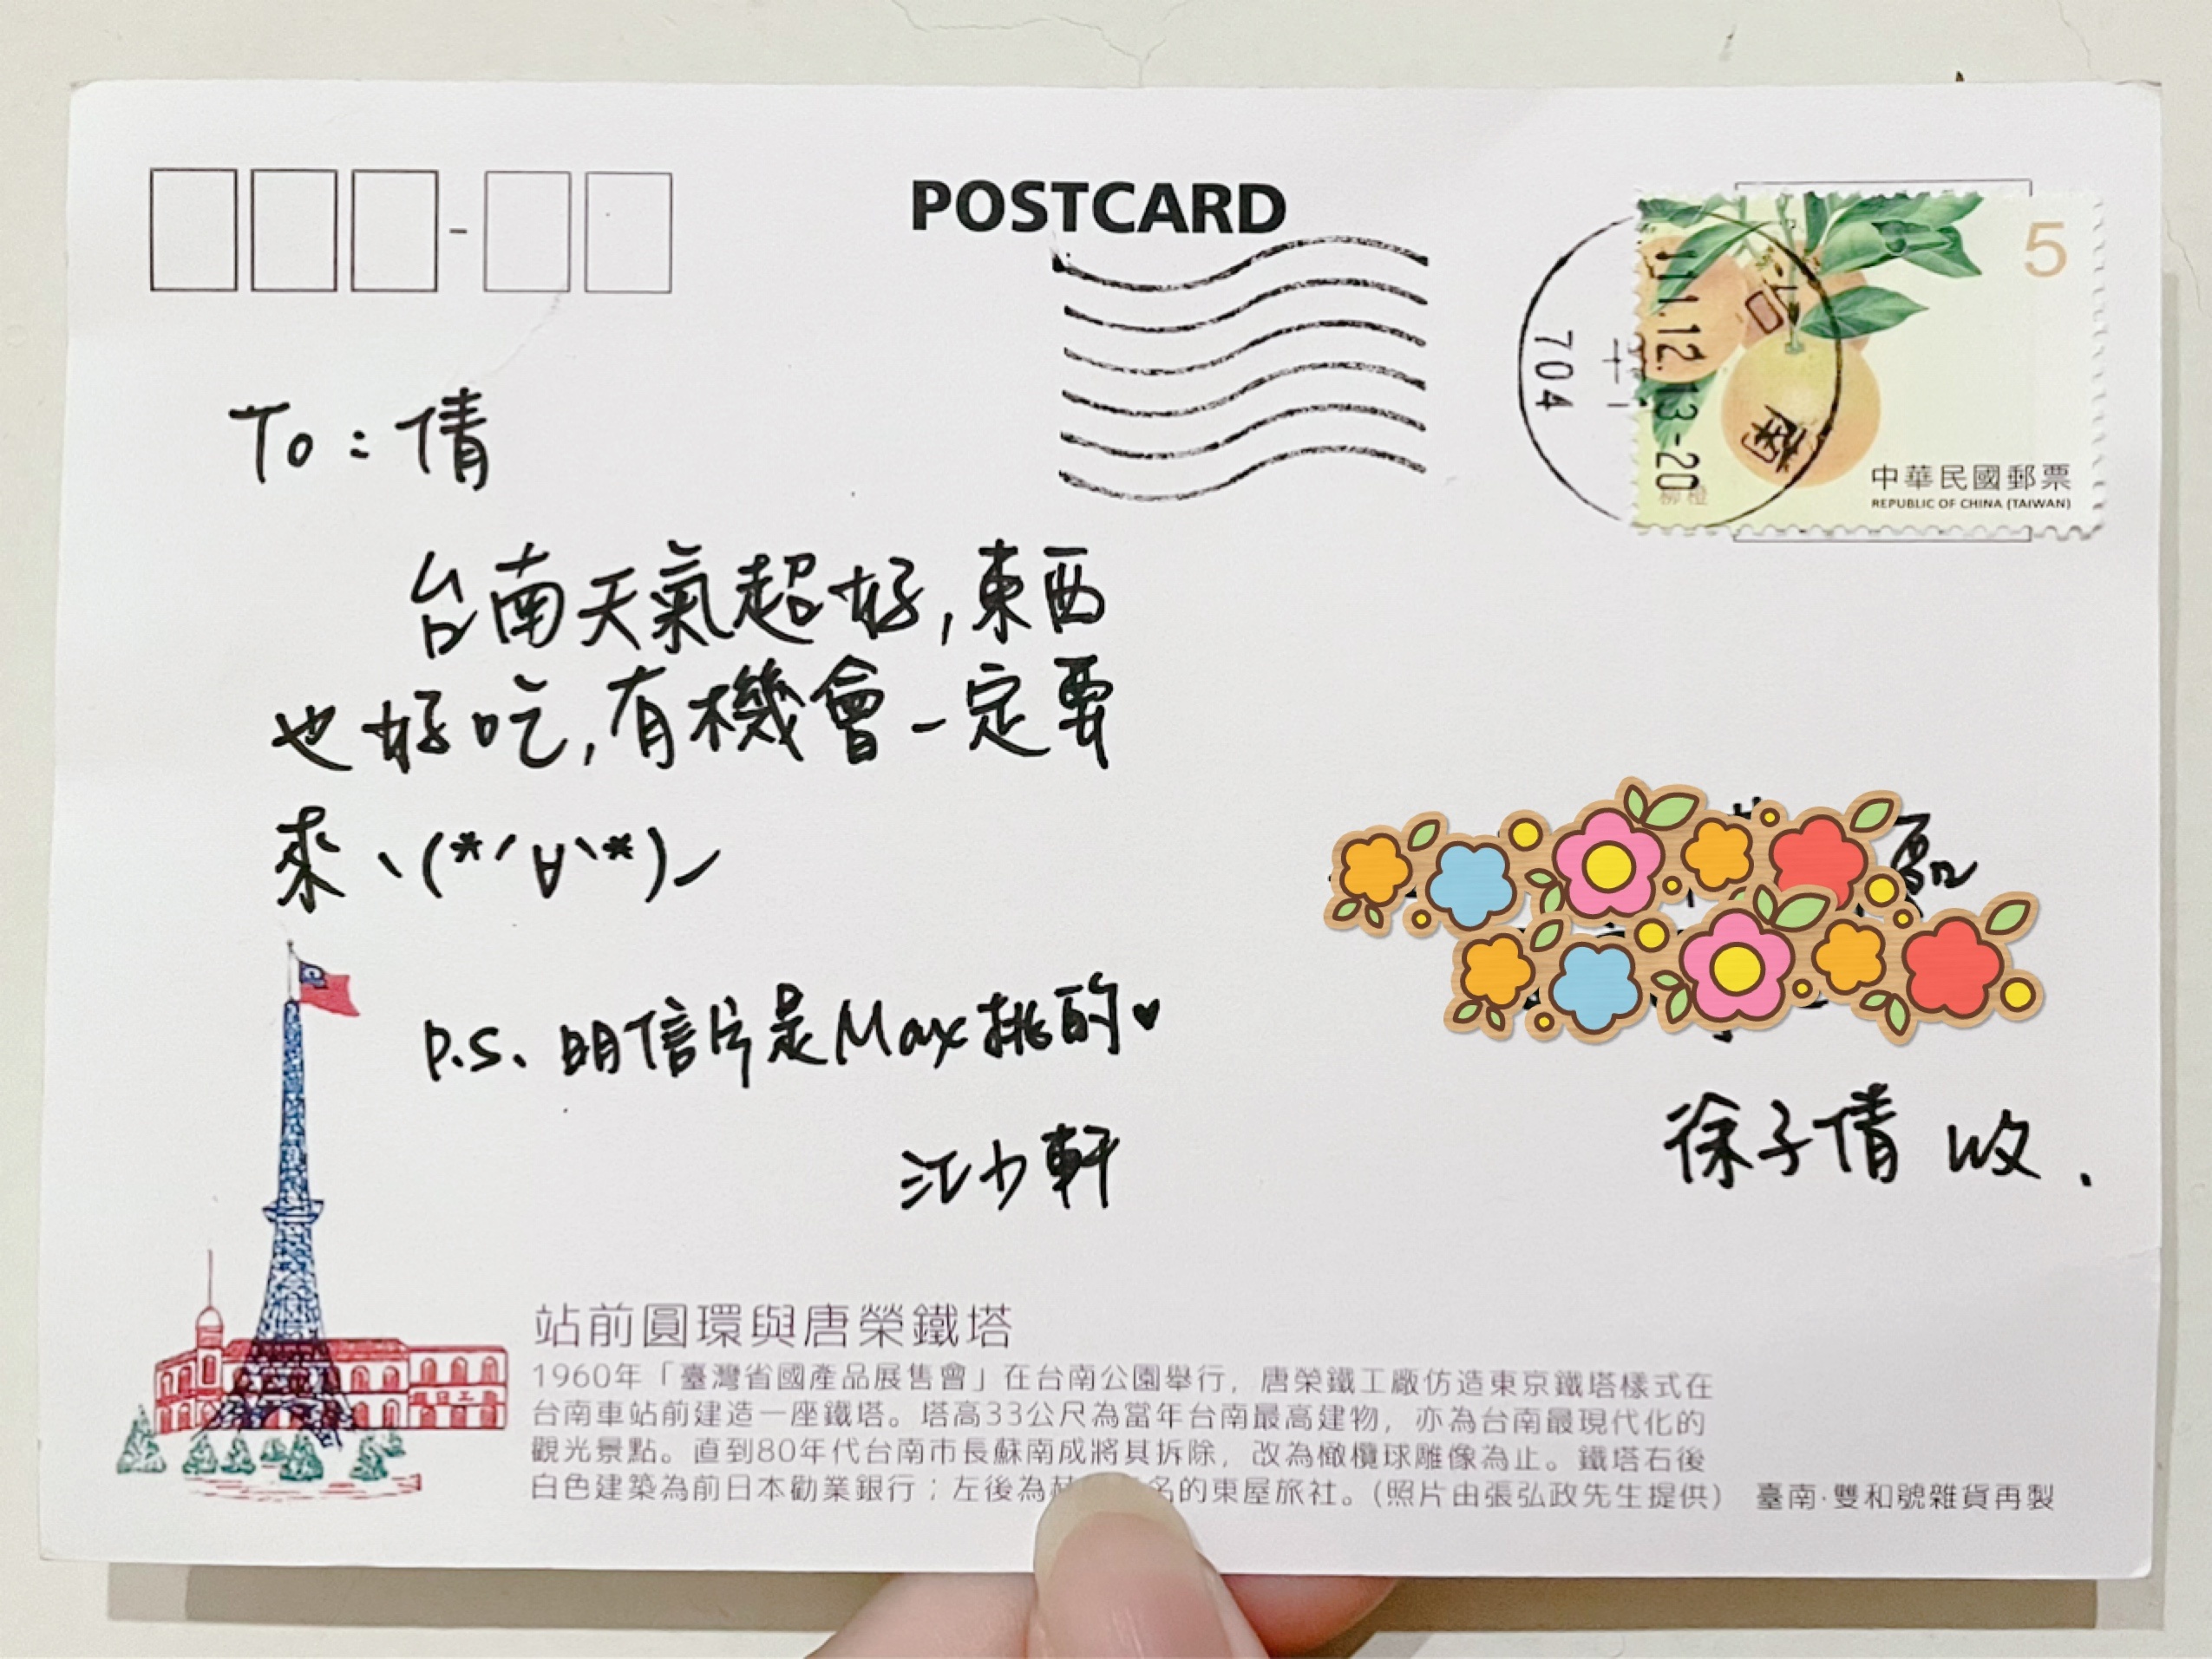 POSTCARD
5
中華民國郵票
REPUBLIC OF CHINA (TAIWAN)
柳橙
台南
704
11.12.13-20
To：倩
台南天氣超好,東西
也好吃,有機會一定要
來ヽ(*ˊ∀ˋ*)ノ
P.S. 明信片是Max挑的♥
江少軒
徐子倩 收.
站前圓環與唐榮鐵塔
1960年「臺灣省國產品展售會」在台南公園舉行，唐榮鐵工廠仿造東京鐵塔樣式在
台南車站前建造一座鐵塔。塔高33公尺為當年台南最高建物，亦為台南最現代化的
觀光景點。直到80年代台南市長蘇南成將其拆除，改為橄欖球雕像為止。鐵塔右後
白色建築為前日本勸業銀行；左後為 名的東屋旅社。(照片由張弘政先生提供)
臺南·雙和號雜貨再製